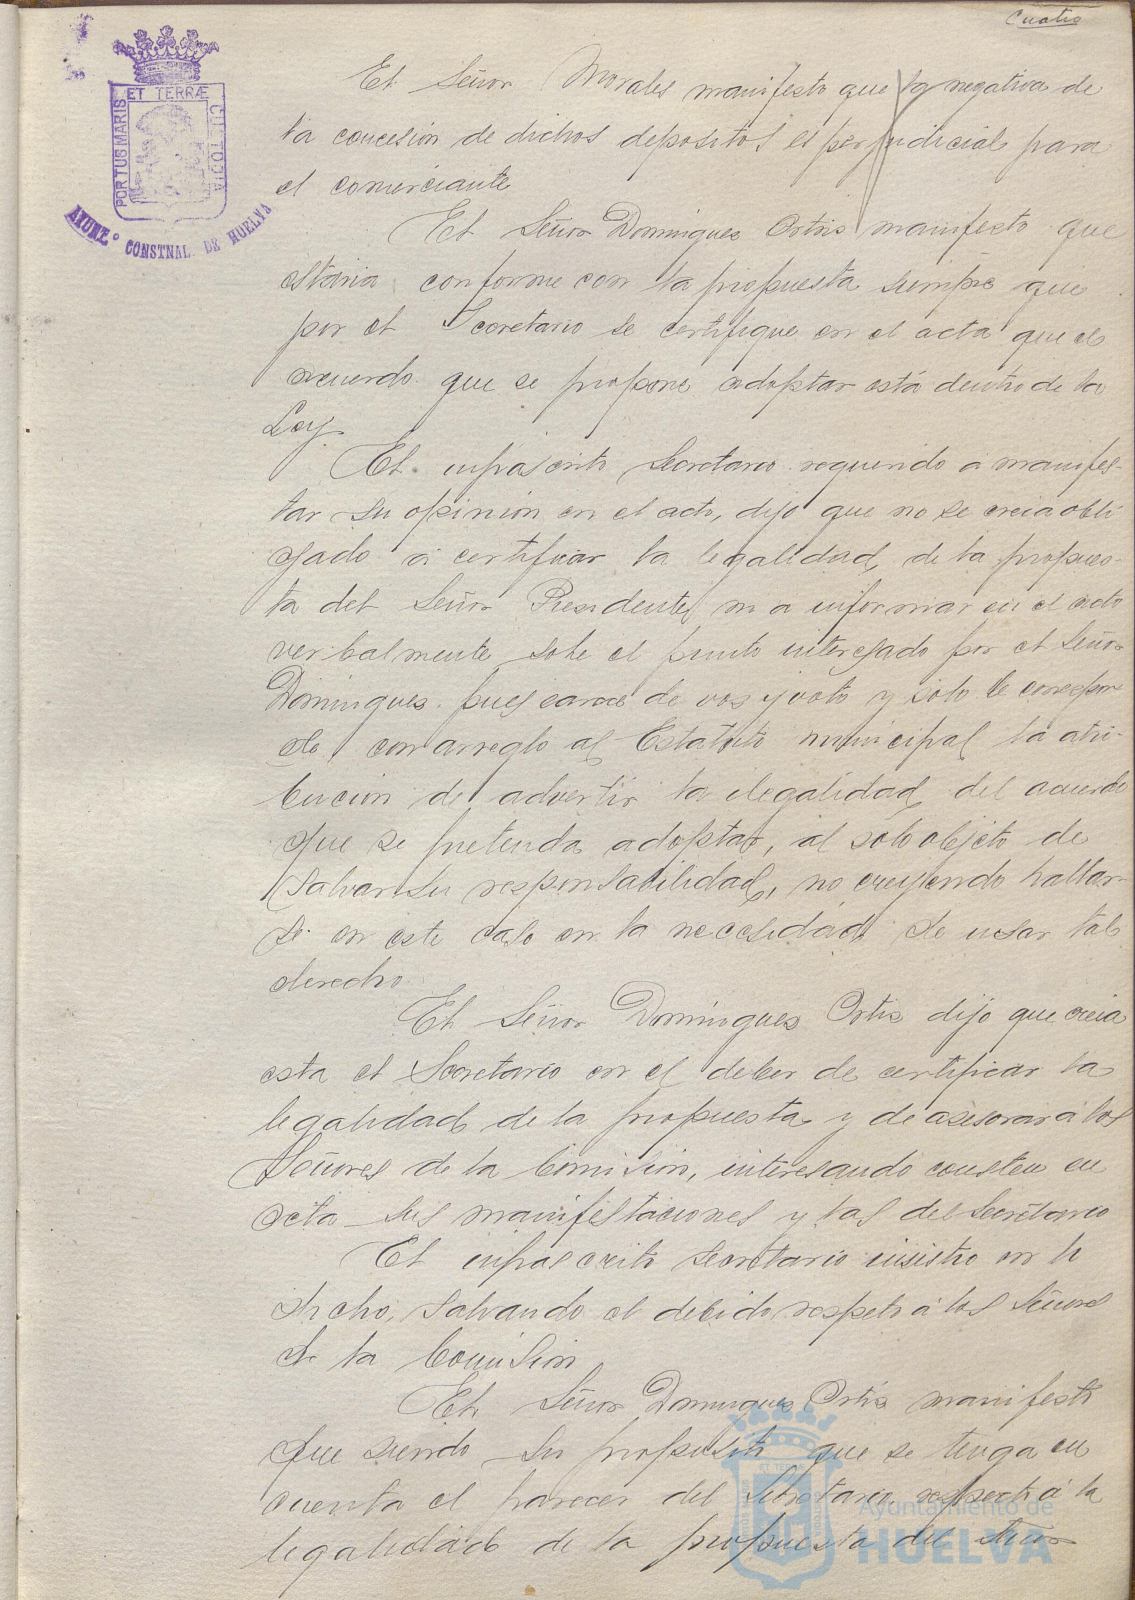 Cuatro
PORTUS MARIS ET TERRÆ CUSTODIA
AYUNT.º CONSTNAL. DE HUELVA
El Señor Morales manifesto que la negativa de
la concesión de dichos depositos es perjudicial para
el comerciante
El Señor Domingues Ortis manifesto que
estaria conforme con la propuesta siempre que
por el Secretario se certifique en el acta que el
acuerdo que se propone adoptar está dentro de la
Ley.
El infrascrito Secretario requerido a manifes-
tar su opinión en el acto, dijo que no se creia obli
gado a certificar la legalidad de la propues-
ta del Señor Presidente, ni a informar en el acto
verbalmente sobe el punto interesado por el Señor
Domingues, pues carece de vos y voto y solo le correspon
de con arreglo al Estatuto municipal la atri-
bución de advertir la ilegalidad del acuerdo
que se pretenda adoptar, al solo objeto de
salvar su responsabilidad, no creyendo hallar-
se en este caso en la necesidad de usar tal
derecho.
El Señor Domingues Ortis dijo que creia
esta el Secretario en el deber de certificar la
legalidad de la propuesta y de asesorar á los
Señores de la Comisión, interesando consten en
acta sus manifestaciones y las del Secretario
El infrascrito Secretario insistio en lo
dicho, salvando el debido respeto á los Señores
de la Comisión.
El Señor Domingues Ortis manifestó
que siendo su proposito que se tenga en
cuenta el parecer del Secretario respecto á la
legalidad de la propuesta del Señor
ET TERRÆ
Ayuntamiento de
HUELVA